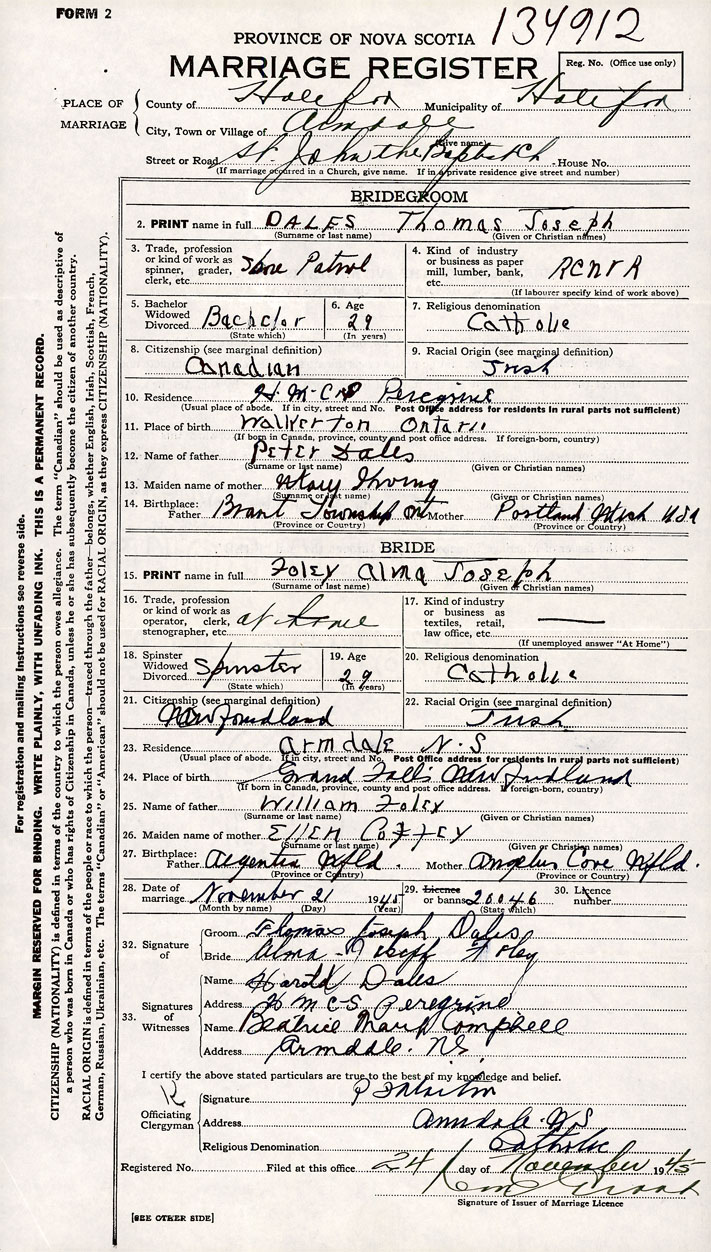 FORM 2
134912
PROVINCE OF NOVA SCOTIA
MARRIAGE REGISTER
Reg. No. (Office use only)
PLACE OF MARRIAGE
County of Halifax Municipality of Halifax
City, Town or Village of Armdale
(Give name)
Street or Road St. John the Baptist Ch House No.
(If marriage occurred in a Church, give name. If in a private residence give street and number)
BRIDEGROOM
2. PRINT name in full DALES Thomas Joseph
(Surname or last name) (Given or Christian names)
3. Trade, profession or kind of work as spinner, grader, clerk, etc. Shore Patrol
4. Kind of industry or business as paper mill, lumber, bank, etc. RCNVR
(If labourer specify kind of work above)
5. Bachelor Widowed Divorced Bachelor
(State which)
6. Age 29
(In years)
7. Religious denomination Catholic
8. Citizenship (see marginal definition) Canadian
9. Racial Origin (see marginal definition) Irish
10. Residence H.M.C.S Peregrine
(Usual place of abode. If in city, street and No. Post Office address for residents in rural parts not sufficient)
11. Place of birth Walkerton Ontario
(If born in Canada, province, county and post office address. If foreign-born, country)
12. Name of father Peter Dales
(Surname or last name) (Given or Christian names)
13. Maiden name of mother Mary Irving
(Surname or last name) (Given or Christian names)
14. Birthplace: Father Brant Township Ont Mother Portland Mich USA
(Province or Country) (Province or Country)
BRIDE
15. PRINT name in full Foley Alma Joseph
(Surname or last name) (Given or Christian names)
16. Trade, profession or kind of work as operator, clerk, stenographer, etc. at home
17. Kind of industry or business as textiles, retail, law office, etc.
(If unemployed answer "At Home")
18. Spinster Widowed Divorced Spinster
(State which)
19. Age 29
(In years)
20. Religious denomination Catholic
21. Citizenship (see marginal definition) Newfoundland
22. Racial Origin (see marginal definition) Irish
23. Residence Armdale N.S
(Usual place of abode. If in city, street and No. Post Office address for residents in rural parts not sufficient)
24. Place of birth Grand Falls Newfoundland
(If born in Canada, province, county and post office address. If foreign-born, country)
25. Name of father William Foley
(Surname or last name) (Given or Christian names)
26. Maiden name of mother Ellen Coffey
(Surname or last name) (Given or Christian names)
27. Birthplace: Father Argentia Nfld. Mother Angels Cove Nfld.
(Province or Country) (Province or Country)
28. Date of marriage November 21 1945
(Month by name) (Day) (Year)
29. Licence or banns 20046
(State which)
30. Licence number
32. Signature of
Groom Thomas Joseph Dales
Bride Alma Joseph Foley
33. Signatures of Witnesses
Name Harold Dales
Address H M C S Peregrine
Name Beatrice Mary Campbell
Address Armdale. NS.
I certify the above stated particulars are true to the best of my knowledge and belief.
Officiating Clergyman
Signature
Address Armdale. N S
Religious Denomination Catholic
Registered No. Filed at this office 24 day of November 1945
Signature of Issuer of Marriage Licence
[SEE OTHER SIDE]
For registration and mailing instructions see reverse side.
MARGIN RESERVED FOR BINDING. WRITE PLAINLY, WITH UNFADING INK. THIS IS A PERMANENT RECORD.
CITIZENSHIP (NATIONALITY) is defined in terms of the country to which the person owes allegiance. The term "Canadian" should be used as descriptive of
a person who was born in Canada or who has rights of Citizenship in Canada, unless he or she has subsequently become the citizen of another country.
RACIAL ORIGIN is defined in terms of the people or race to which the person—traced through the father—belongs, whether English, Irish, Scottish, French,
German, Russian, Ukrainian, etc. The terms "Canadian" or "American" should not be used for RACIAL ORIGIN, as they express CITIZENSHIP (NATIONALITY).